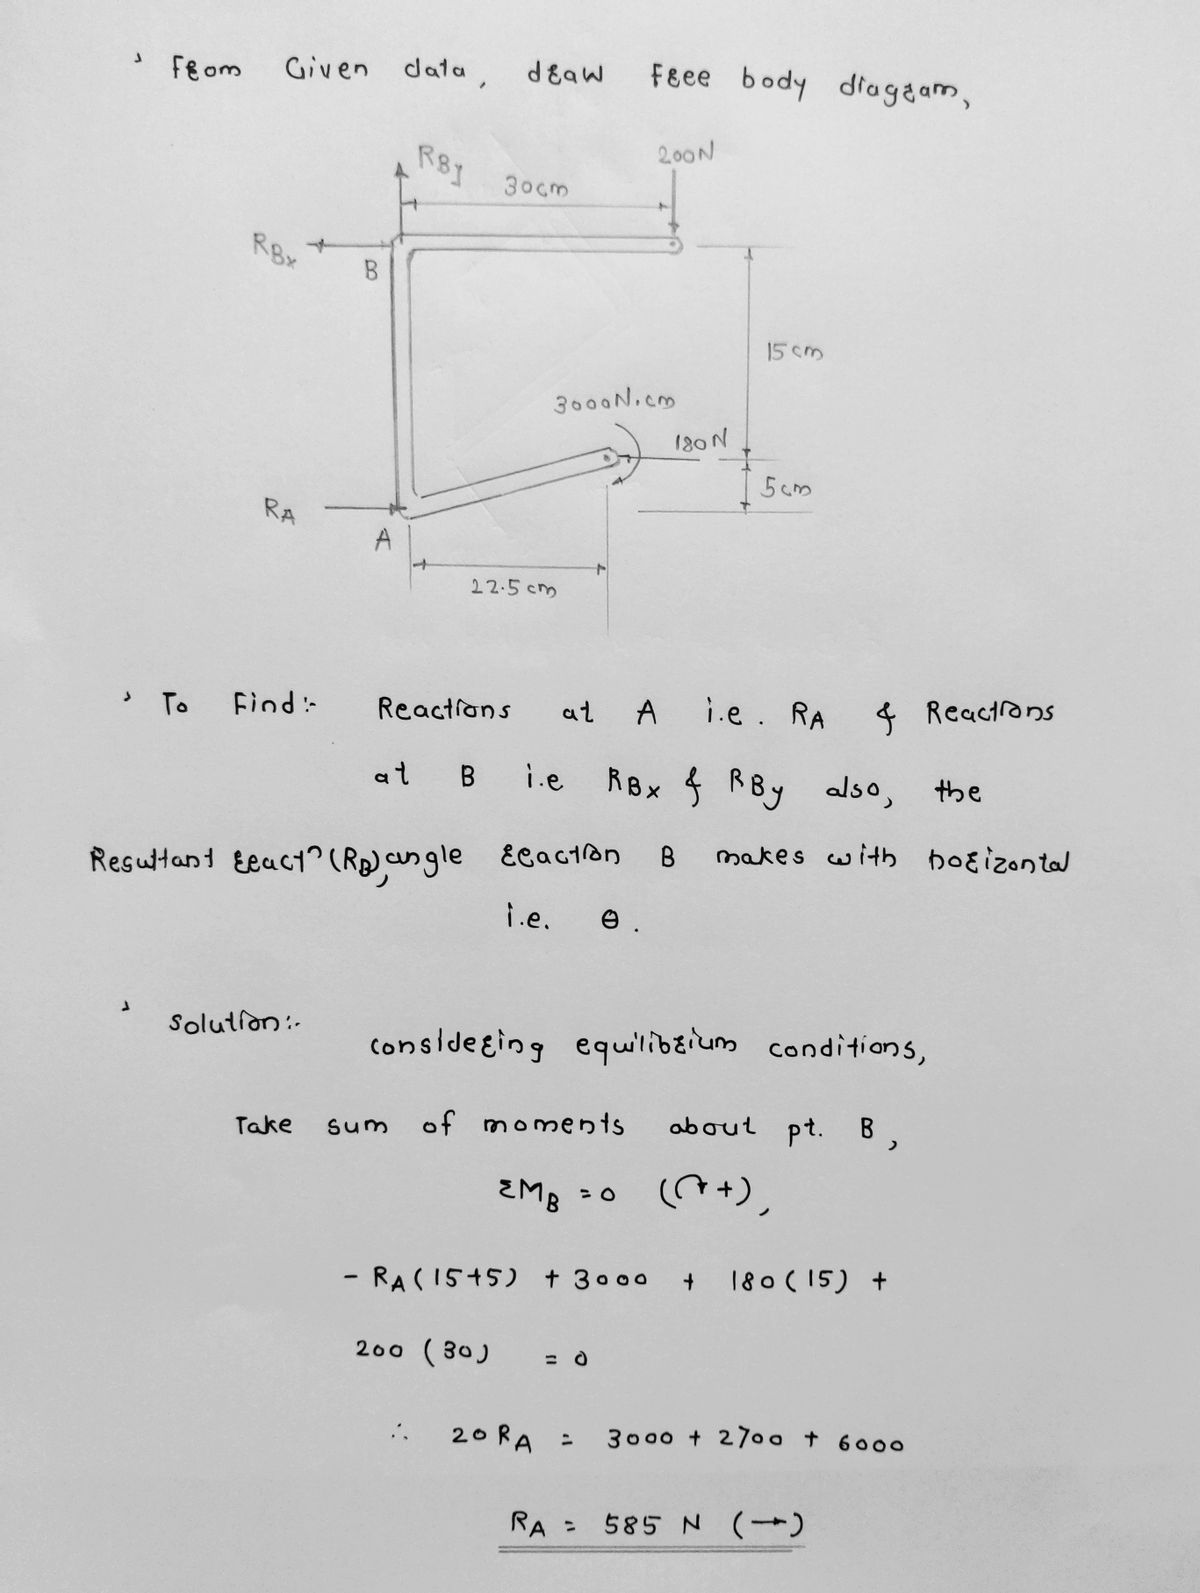 From Given data, draw free body diagram,
RBy
200N
30cm
RBx
B
15cm
3000N.cm
180N
5cm
RA
A
22.5cm
To Find:- Reactions at A i.e. RA & Reactions
at B i.e RBx & RBy also, the
Resultant reactn (RB), angle reaction B makes with horizontal
i.e. θ.
Solution:-
considering equilibrium conditions,
Take sum of moments about pt. B,
ΣMB = 0 (↷+),
- RA(15+5) + 3000 + 180(15) +
200(30) = 0
∴ 20RA = 3000 + 2700 + 6000
RA = 585 N (→)